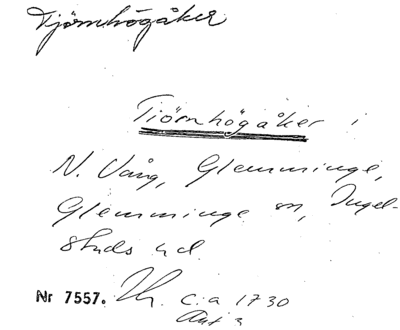 Tjörnhögåker
Tiörnhögåker i
N. Vång, Glemminge,
Glemminge sn, Ingel-
stads hd.
Nr 7557. c:a 1730